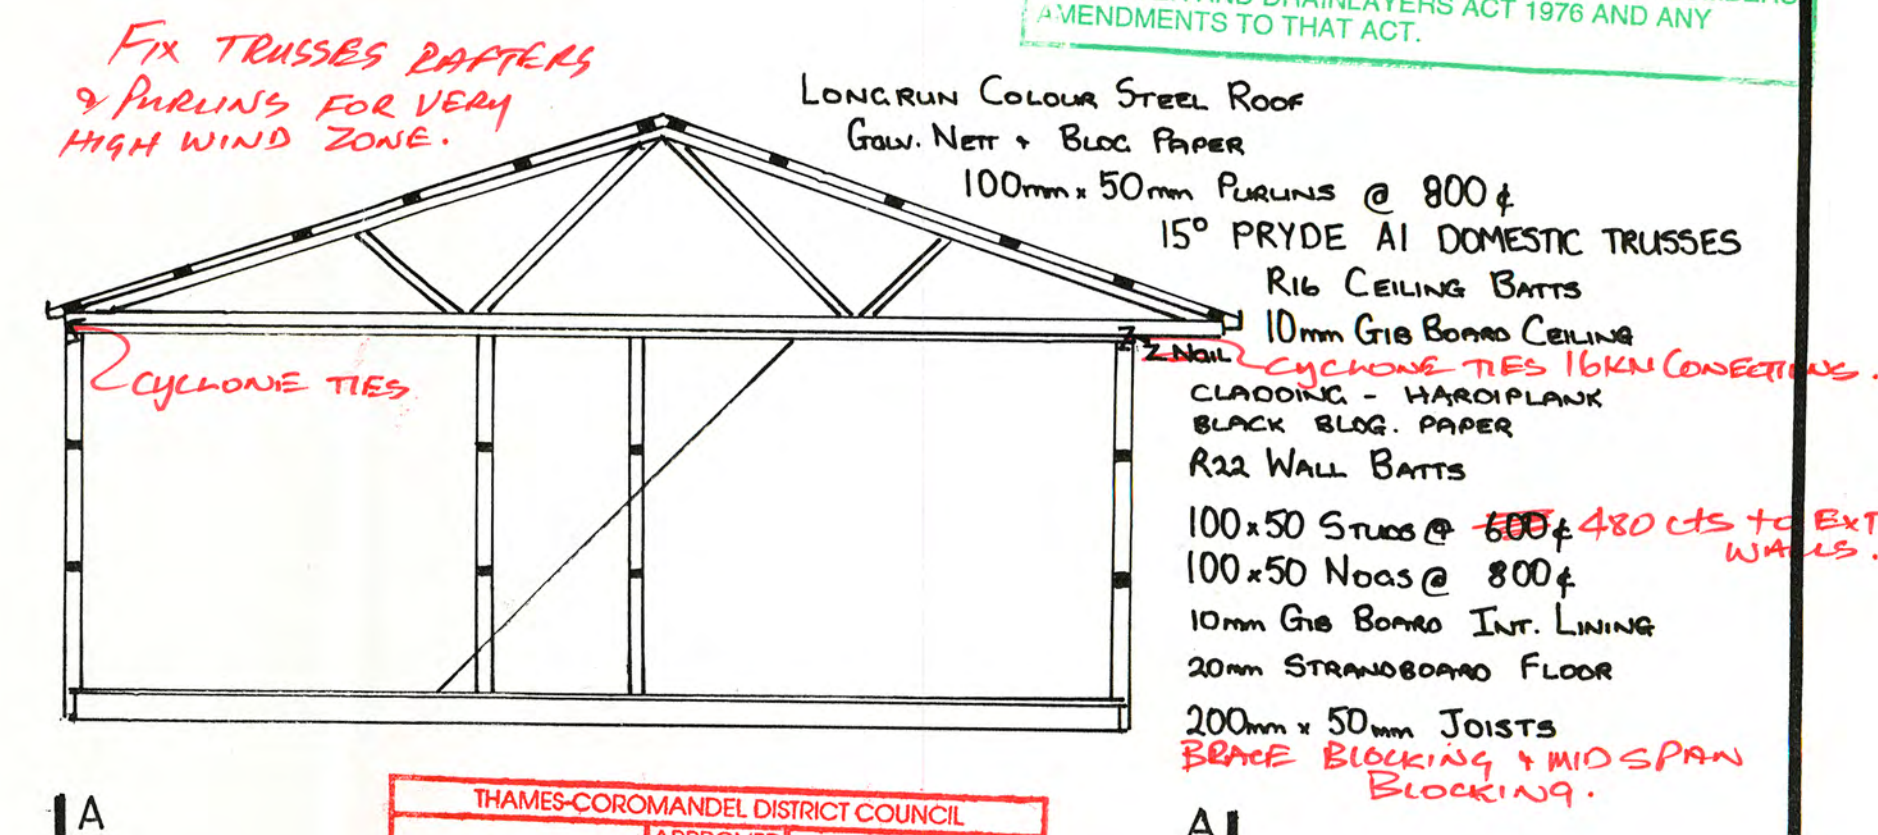 AND DRAINLAYERS ACT 1976 AND ANY
AMENDMENTS TO THAT ACT.
FIX TRUSSES RAFTERS
& PURLINS FOR VERY
HIGH WIND ZONE.
LONGRUN COLOUR STEEL ROOF
GALV. NETT + BLDG PAPER
100mm x 50mm PURLINS @ 900 ¢
15° PRYDE A1 DOMESTIC TRUSSES
R16 CEILING BATTS
10mm GIB BOARD CEILING
2 NAIL CYCLONE TIES 16KN CONECTIONS.
CYCLONE TIES
CLADDING - HARDIPLANK
BLACK BLDG. PAPER
R22 WALL BATTS
100x50 STUDS @ 600 ¢ 480 cts to EXT
WALLS.
100x50 NOGS @ 800 ¢
10mm GIB BOARD INT. LINING
20mm STRANDBOARD FLOOR
200mm x 50mm JOISTS
BRACE BLOCKING & MIDSPAN
BLOCKING.
A
A
THAMES-COROMANDEL DISTRICT COUNCIL
APPROVED